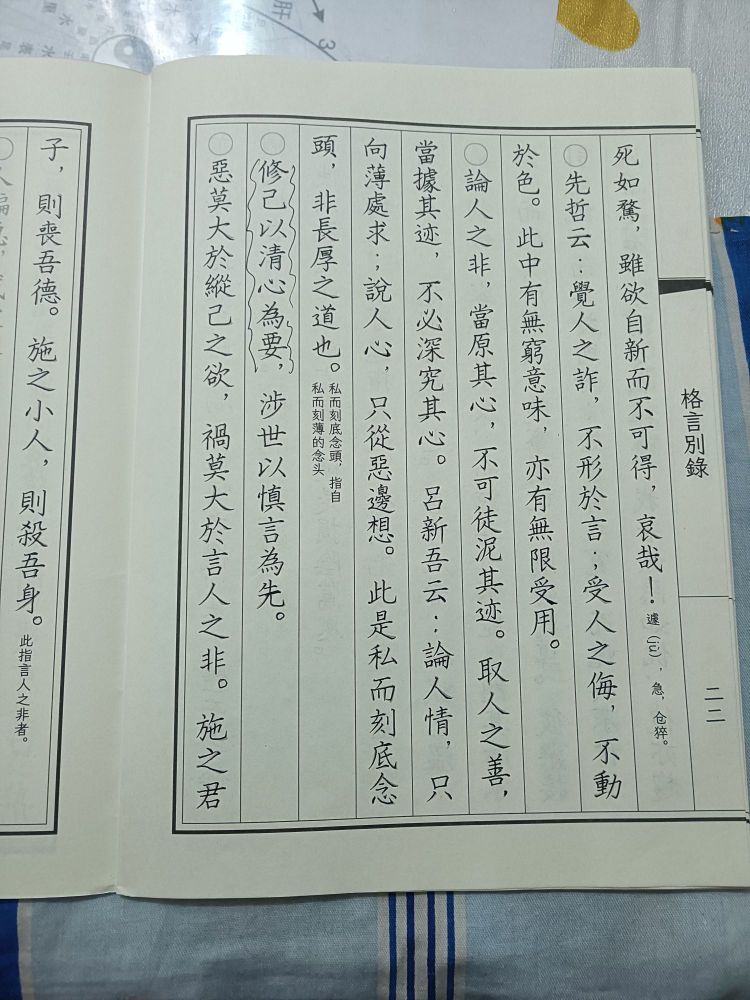 格言別錄
二二
死如騖，雖欲自新而不可得，哀哉！遽（jù），急，仓猝。
○先哲云：覺人之詐，不形於言；受人之侮，不動
於色。此中有無窮意味，亦有無限受用。
○論人之非，當原其心，不可徒泥其迹。取人之善，
當據其迹，不必深究其心。呂新吾云：論人情，只
向薄處求；說人心，只從惡邊想。此是私而刻底念
頭，非長厚之道也。私而刻底念頭，指自
私而刻薄的念头
○修己以清心為要，涉世以慎言為先。
○惡莫大於縱己之欲，禍莫大於言人之非。施之君
子，則喪吾德。施之小人，則殺吾身。此指言人之非者。